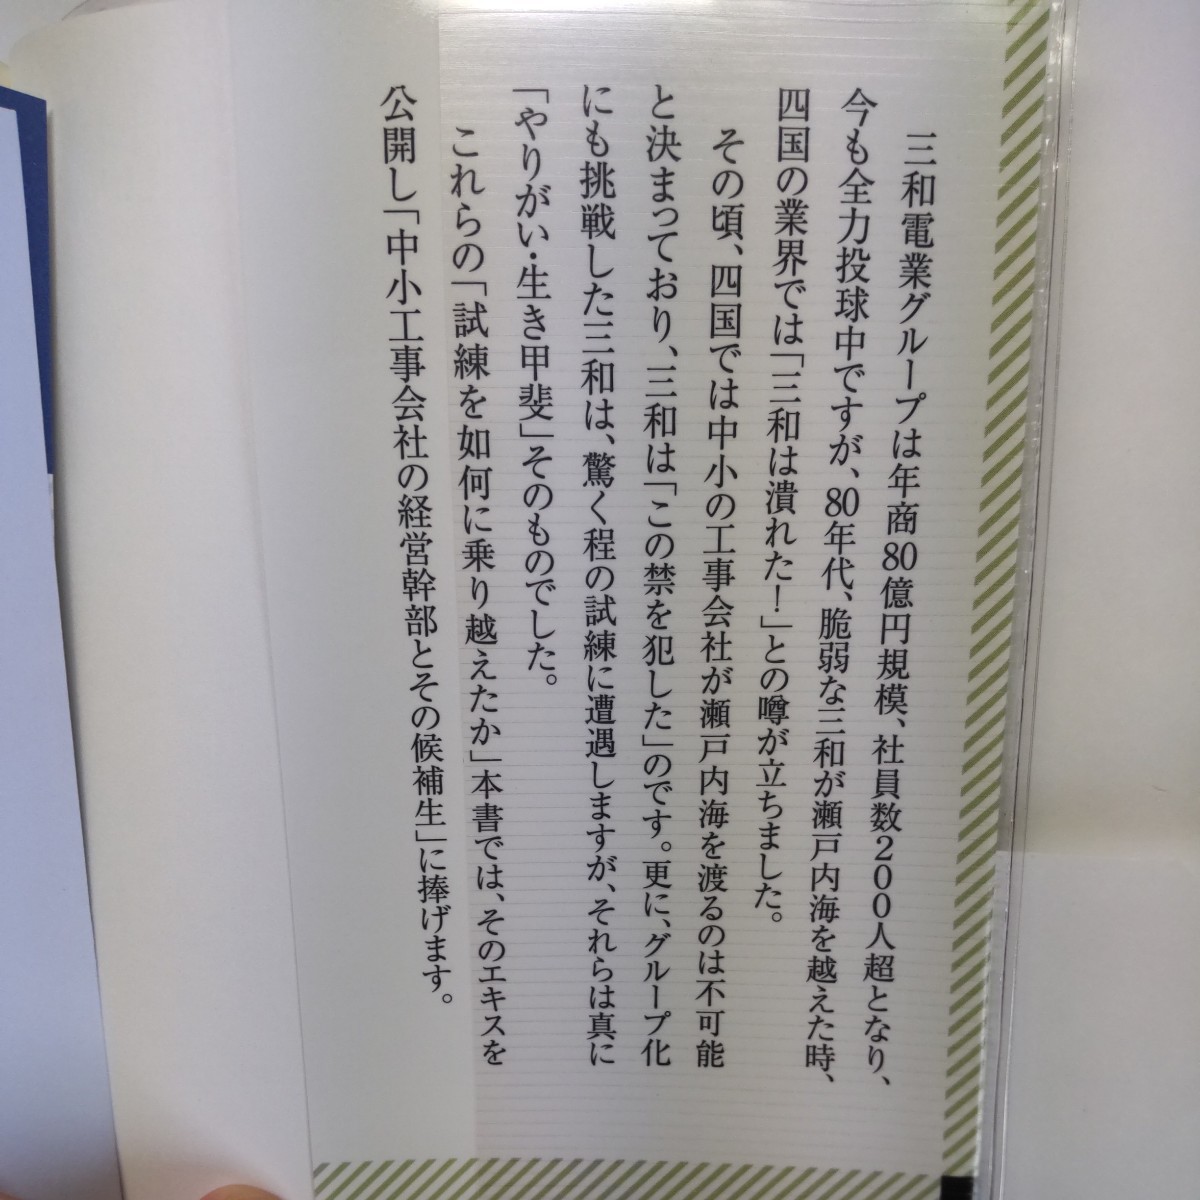 三和電業グループは年商80億円規模、社員数200人超となり、
今も全力投球中ですが、80年代、脆弱な三和が瀬戸内海を越えた時、
四国の業界では「三和は潰れた！」との噂が立ちました。
その頃、四国では中小の工事会社が瀬戸内海を渡るのは不可能
と決まっており、三和は「この禁を犯した」のです。更に、グループ化
にも挑戦した三和は、驚く程の試練に遭遇しますが、それらは真に
「やりがい・生き甲斐」そのものでした。
これらの「試練を如何に乗り越えたか」本書では、そのエキスを
公開し「中小工事会社の経営幹部とその候補生」に捧げます。